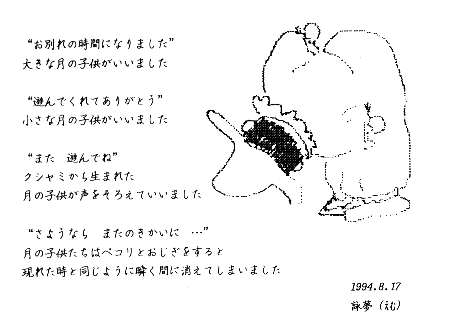 “お別れの時間になりました”
大きな月の子供がいいました
“遊んでくれてありがとう”
小さな月の子供がいいました
“また　遊んでね”
クシャミから生まれた
月の子供が声をそろえていいました
“さようなら　またのきかいに　…”
月の子供たちはペコリとおじぎをすると
現れた時と同じように瞬く間に消えてしまいました
1994.8.17
詠夢（えむ）